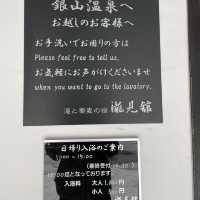 銀山温泉へ
お越しのお客様へ
お手洗いでお困りの方は
Please feel free to tell us.
お気軽にお声がけくださいませ
when you want to go to the lavatory.
滝と蕎麦の宿 瀧見舘
日帰り入浴のご案内
(最終受付
となっております。
入浴料 大人
小人
瀧見舘